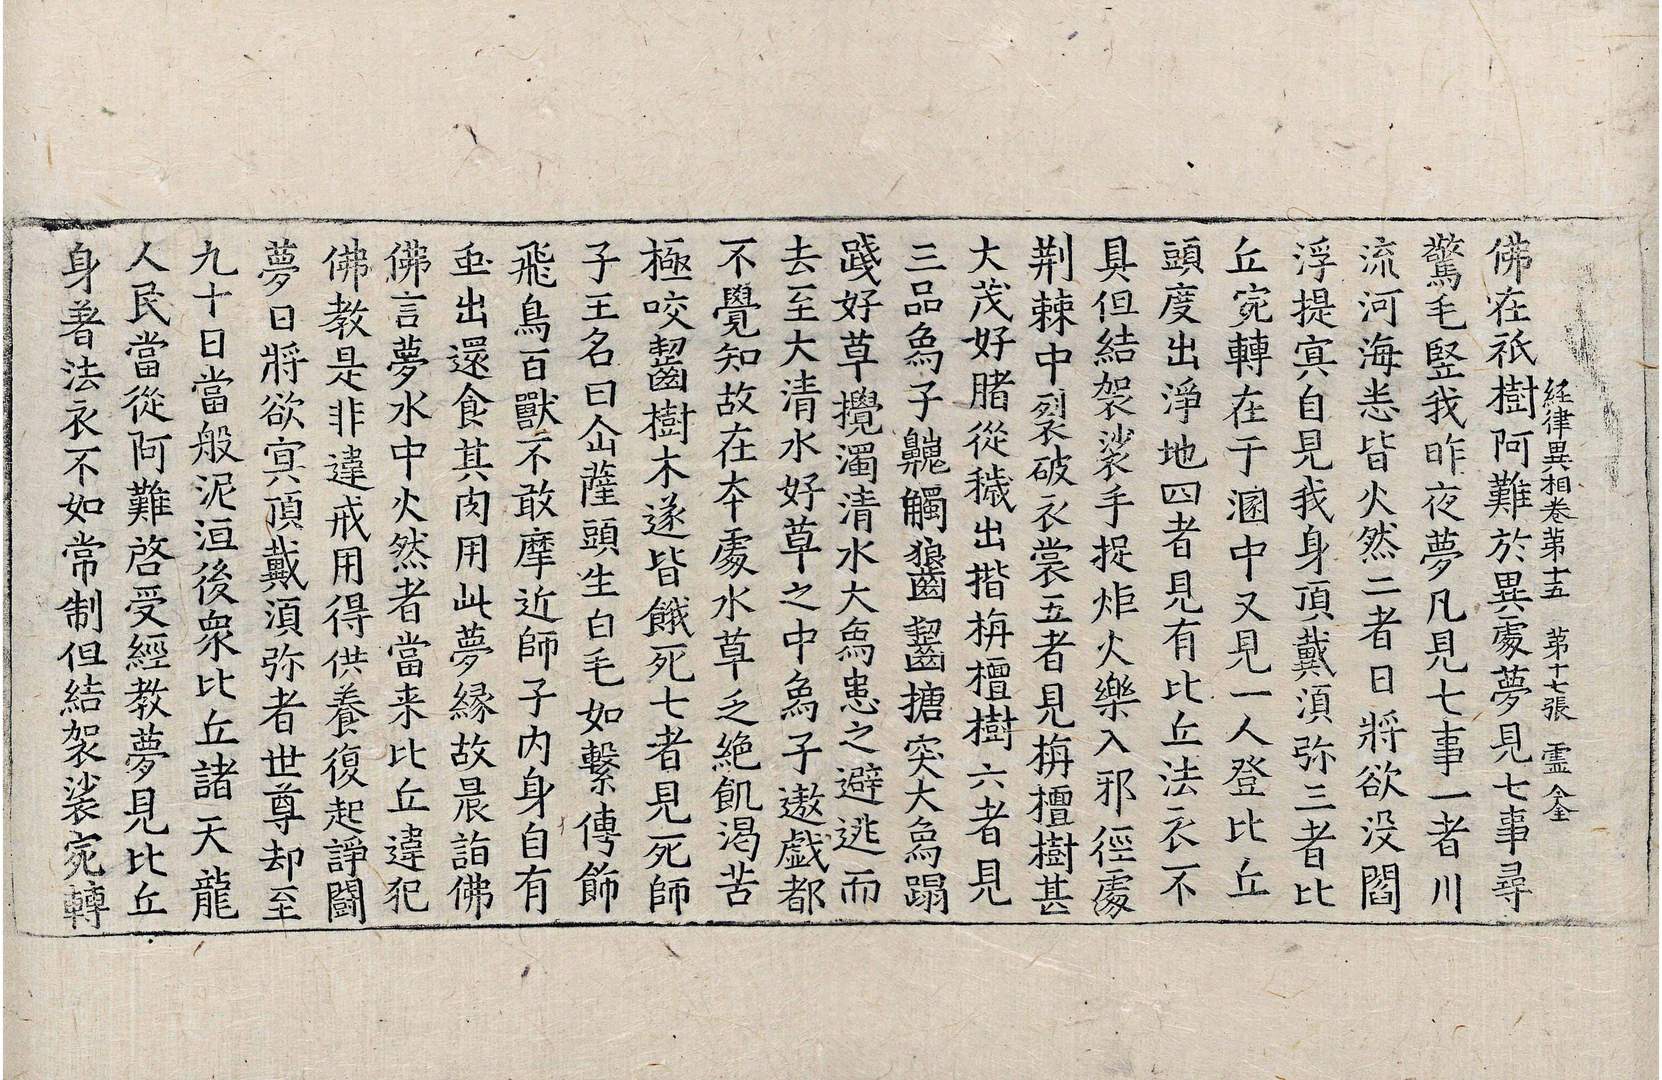 経律異相卷第十五 第十七張 霊 全
佛在祇樹阿難於異處夢見七事尋
驚毛竪我昨夜夢凡見七事一者川
流河海恙皆火然二者日將欲没閻
浮提㝠自見我身頂戴湏弥三者比
丘宛轉在于溷中又見一人登比丘
頭度出淨地四者見有比丘法衣不
具但結袈裟手捉炬火樂入邪徑處
荆棘中裂破衣裳五者見栴檀樹甚
大茂好腊從穢出揩栴檀樹六者見
三品烏子齆觸狼齒齧搪突大烏蹋
踐好草攪濁清水大烏患之避逃而
去至大清水好草之中烏子遨戲都
不覺知故在夲處水草乏絶飢渇苦
極咬齧樹木遂皆餓死七者見死師
子王名曰仚薩頭生白毛如繫傳飾
飛鳥百獸不敢摩近師子内身自有
䖝出還食其肉用此夢縁故晨詣佛
佛言夢水中火然者當来比丘違犯
佛教是非違戒用得供養復起諍鬪
夢日將欲㝠頂戴湏弥者世尊却至
九十日當般泥洹後衆比丘諸天龍
人民當從阿難啓受經教夢見比丘
身著法衣不如常制但結袈裟宛轉